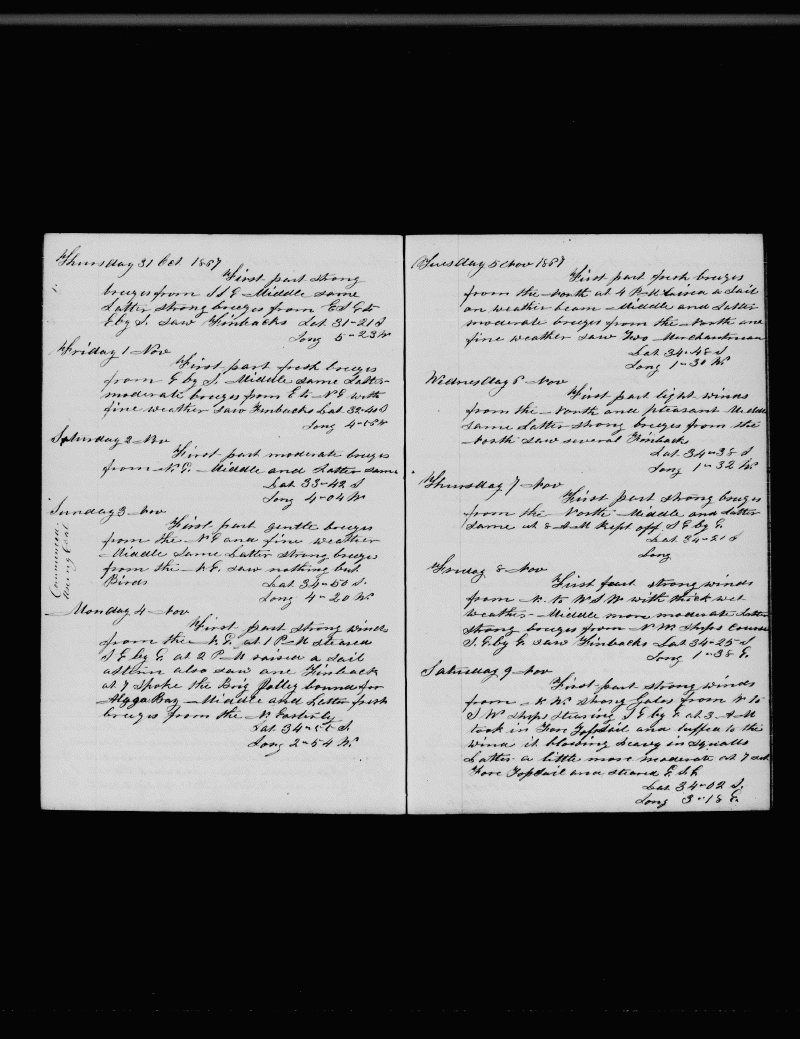 Thursday 31 Oct 1867
First part strong
breezes from S S E - Middle same
Latter strong breezes from E S E to
E by S. Saw Finbacks Lat 31-21 S
Long 5-23 W
Friday 1 Nov
First part fresh breezes
from E by S. Middle same Latter
moderate breezes from E to N E with
fine weather Saw Finbacks Lat 32-40 S
Long 4-55 W
Saturday 2 Nov
First part moderate breezes
from N.E. - Middle and Latter same
Lat 33-42 S
Long 4-04 W
Sunday 3 Nov
First part gentle breezes
from the N E and fine weather
Middle Same Latter strong breezes
from the N.E. saw nothing but
Birds Lat 34-50 S.
Long 4-20 W.
Commenced
using Coal
Monday 4 Nov
First part strong winds
from the N.E. at 1 P-M steared
S E by E. at 2 P-M raised a sail
astern also saw one Finback
at 7 Spoke the Brig bound for
Algoa Bay - Middle and Latter fresh
breezes from the N. Easterly
Lat 34-55 S.
Long 2-54 W.
Tuesday 5 Nov 1867
First part fresh breezes
from the North at 4 P-M raised a Sail
on weather beam - Middle and Latter
moderate breezes from the North and
fine weather saw Two Merchantmen
Lat 34-48 S
Long 1-30 W.
Wednesday 6 Nov
First part light winds
from the North and pleasant Middle
same Latter strong breezes from the
North saw several Finbacks
Lat 34-38 S
Long 1-32 W.
Thursday 7 Nov
First part strong breezes
from the North - Middle and Latter
same at 8 A-M Kept off S E by E.
Lat 34-21 S
Long
Friday 8 Nov
First part strong winds
from N. to W S W with thick wet
weather - Middle more moderate Latter
strong breezes from N W Ships Course
S. E by E saw Finbacks Lat 34-25 S
Long 1-38 E.
Saturday 9 Nov
First part strong winds
from N W. strong Gales from W to
S. W Ships Stearing S E by E at 3 A-M
took in Fore Topsail and luffed to the
wind it blowing heavy in squalls
Latter a little more moderate at 7 set
Fore Topsail and steared E. S. E
Lat 34-02 S.
Long 3-18 E.